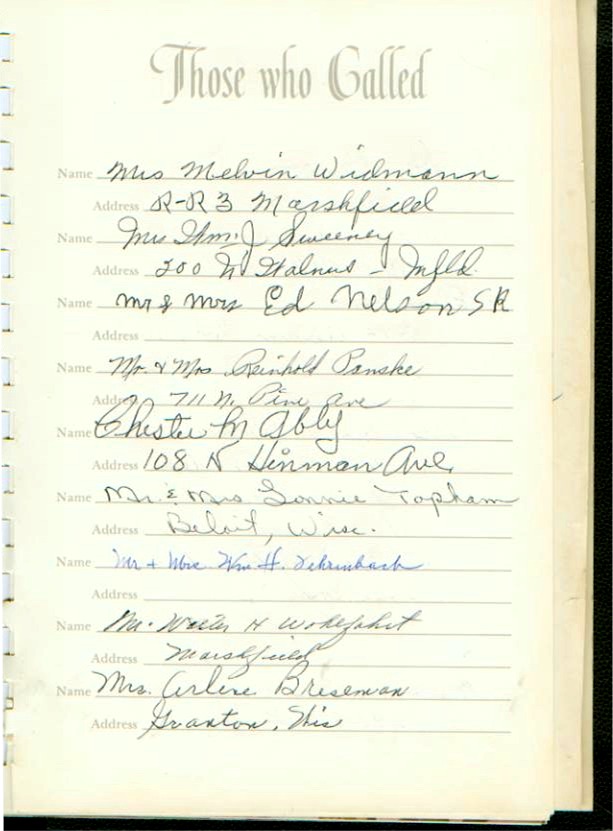 Those who Called
Name Mrs Melvin Widmann
Address R-R 3 Marshfield
Name Mrs Wm. J. Sweeney
Address 200 N Walnut - Mfld.
Name Mr & Mrs Ed Nelson SR
Address
Name Mr. & Mrs Reinhold Panske
Address 711 N. Pine Ave
Name Chester M Ably
Address 108 N Hinman Ave.
Name Mr. & Mrs Lonnie Topham
Address Beloit, Wisc.
Name Mr + Mrs. Wm H. Fehrenbach
Address
Name Mr. Walter H Wohlfahrt
Address Marshfield
Name Mrs. Arlene Breseman
Address Granton, Wis